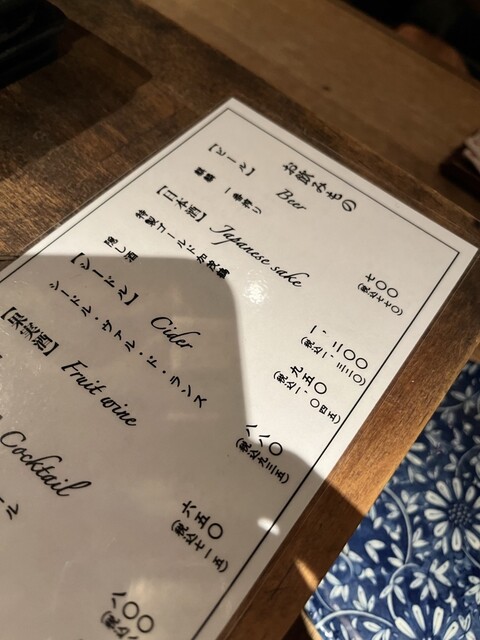 お飲みもの
【ビール】 Beer
麒麟 一番搾り 七〇〇
(税込七七〇)
【日本酒】 Japanese sake
特製ゴールド加茂鶴 一、二〇〇
(税込一、三二〇)
隠し酒 九五〇
(税込一、〇四五)
【シードル】 Cider
シードル・ヴァル・ド・ランス 八八〇
(税込九三五)
【果実酒】 Fruit wine
六五〇
(税込七一五)
Cocktail
八〇〇
(税込八